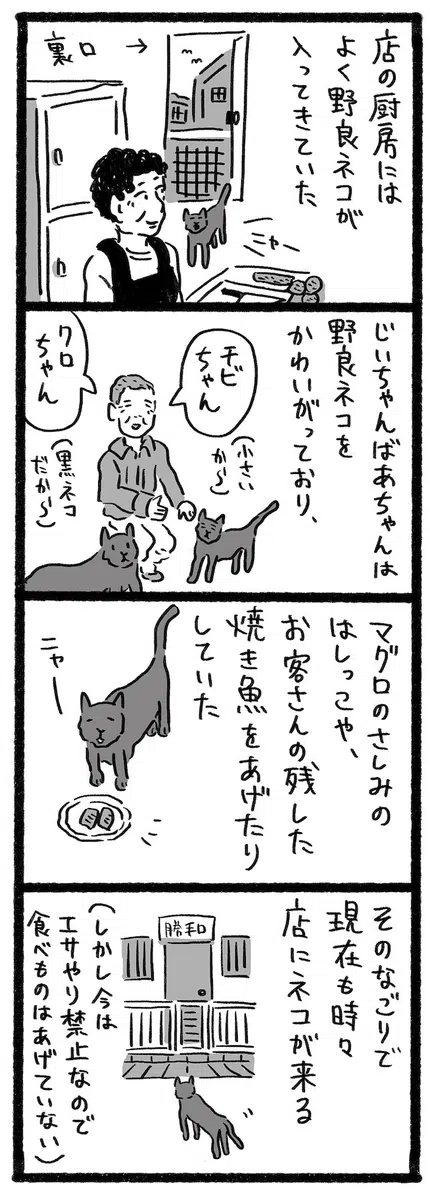 店の厨房には
よく野良ネコが
入ってきていた
裏口 →
ニャー
じいちゃんばあちゃんは
野良ネコを
かわいがっており、
チビ
ちゃん
(小さい
から〜)
クロ
ちゃん
(黒ネコ
だから〜)
マグロのさしみの
はしっこや、
お客さんの残した
焼き魚をあげたり
していた
ニャー
そのなごりで
現在も時々
店にネコが来る
勝和
(しかし今は
エサやり禁止なので
食べものはあげていない)